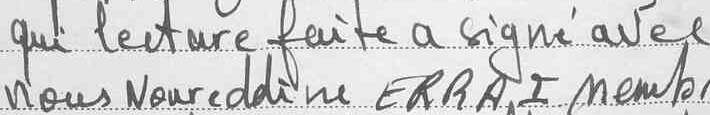 qui lecture faite a signé avec
nous Noureddine ERRAI memb